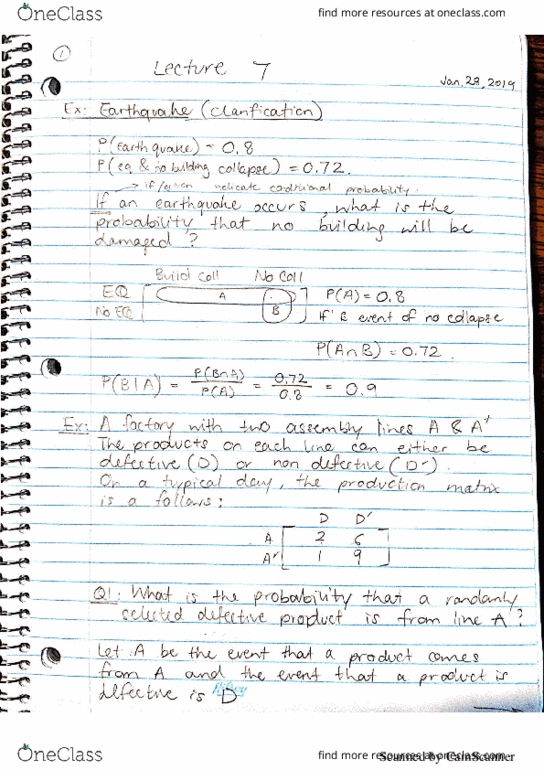 OneClass
find more resources at oneclass.com
1
Lecture 7
Jan. 28, 2019
Ex: Earthquake (clarification)
P(earthquake) = 0.8
P(eq & no building collapse) = 0.72.
→ if/given indicate conditional probability.
If an earthquake occurs, what is the
probability that no building will be
damaged?
Build coll No Coll
EQ A P(A) = 0.8
No EQ B If B event of no collapse
P(A∩B) = 0.72.
P(B|A) = P(B∩A) / P(A) = 0.72 / 0.8 = 0.9
Ex: A factory with two assembly lines A & A'
The products on each line can either be
defective (D) or non defective (D').
On a typical day, the production matrix
is a follows:
D D'
A 2 6
A' 1 9
Q1: What is the probability that a randomly
selected defective product is from line A?
Let A be the event that a product comes
from A and the event that a product is
defective is D
OneClass
find more resources at oneclass.com
Scanned by CamScanner